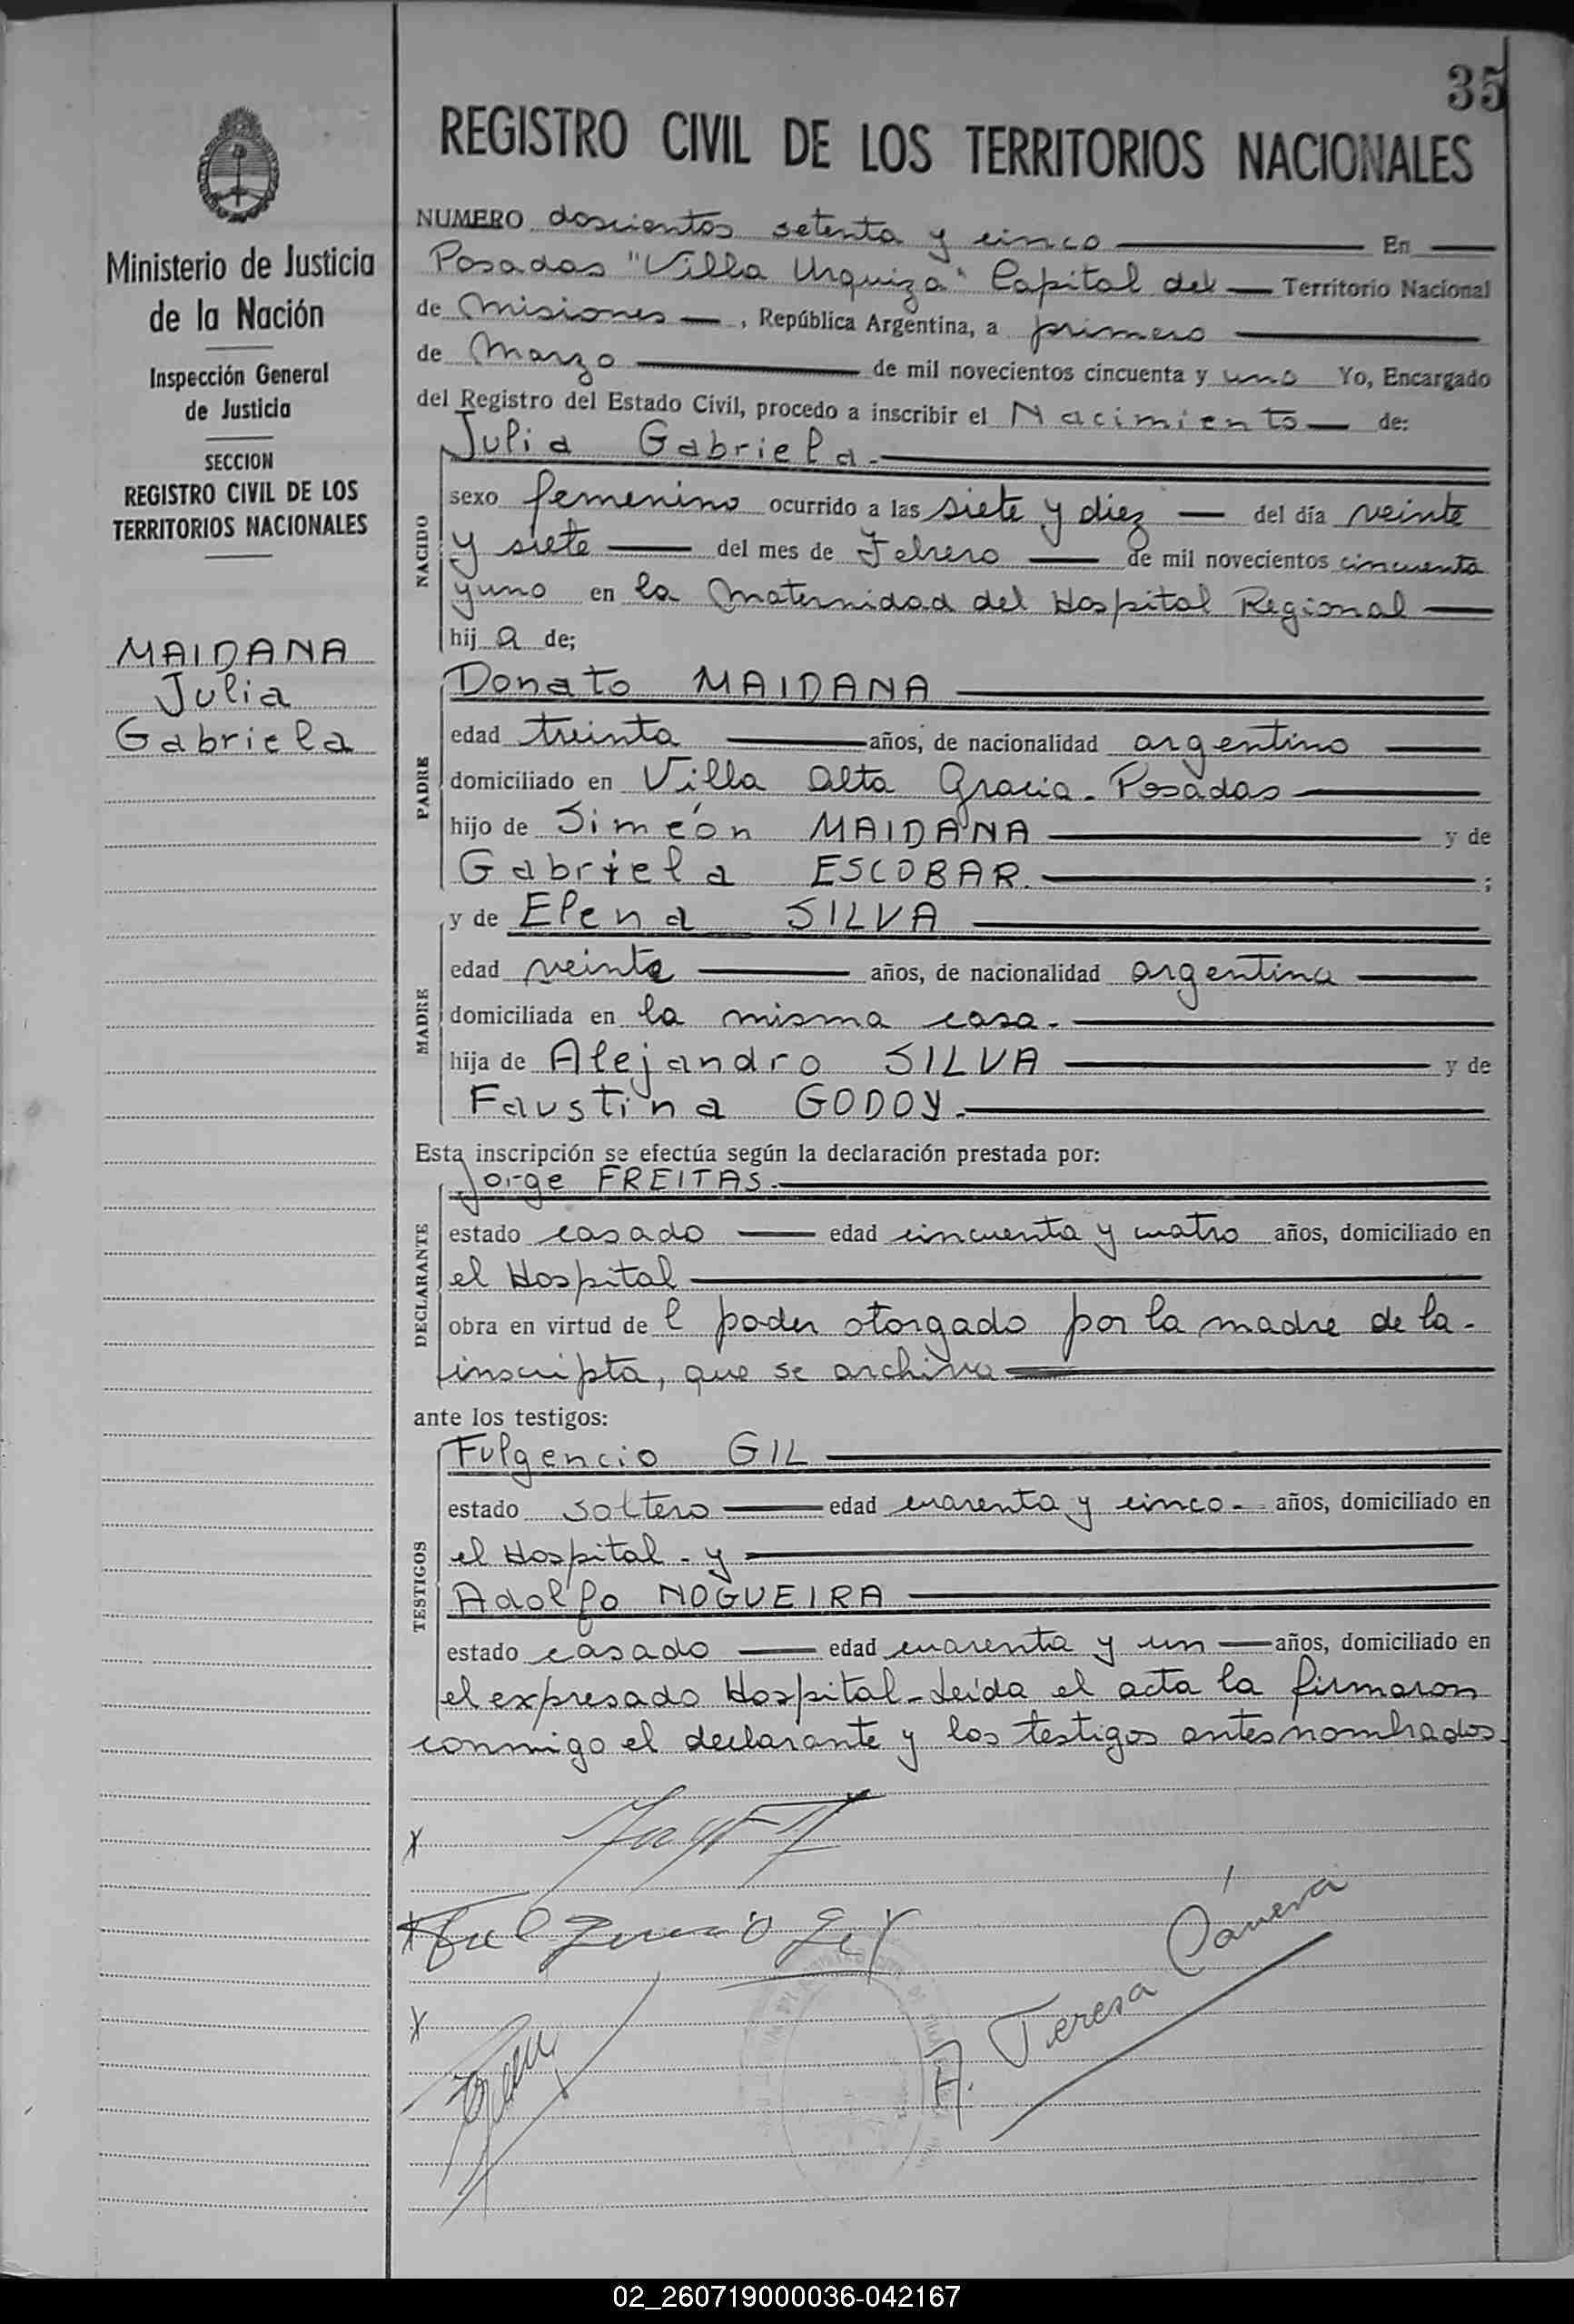 35
REGISTRO CIVIL DE LOS TERRITORIOS NACIONALES
Ministerio de Justicia
de la Nación
Inspección General
de Justicia
SECCION
REGISTRO CIVIL DE LOS
TERRITORIOS NACIONALES
MAIDANA
Julia
Gabriela
NUMERO doscientos setenta y cinco En
Posadas "Villa Urquiza" Capital del Territorio Nacional
de Misiones, República Argentina, a primero
de Marzo de mil novecientos cincuenta y uno Yo, Encargado
del Registro del Estado Civil, procedo a inscribir el Nacimiento de:
NACIDO
Julia Gabriela.
sexo femenino ocurrido a las siete y diez del día veinte
y siete del mes de Febrero de mil novecientos cincuenta
y uno en la Maternidad del Hospital Regional
hij a de;
PADRE
Donato MAIDANA
edad treinta años, de nacionalidad argentino
domiciliado en Villa Alta Gracia. Posadas
hijo de Simeón MAIDANA y de
Gabriela ESCOBAR. ;
MADRE
y de Elena SILVA
edad veinte años, de nacionalidad argentina
domiciliada en la misma casa.
hija de Alejandro SILVA y de
Faustina GODOY.
Esta inscripción se efectúa según la declaración prestada por:
DECLARANTE
Jorge FREITAS.
estado casado edad cincuenta y cuatro años, domiciliado en
el Hospital
obra en virtud de l poder otorgado por la madre de la
inscripta, que se archiva
ante los testigos:
TESTIGOS
Fulgencio GIL
estado soltero edad cuarenta y cinco. años, domiciliado en
el Hospital. y
Adolfo NOGUEIRA
estado casado edad cuarenta y un años, domiciliado en
el expresado Hospital. Leída el acta la firmaron
conmigo el declarante y los testigos antes nombrados.
x
x Fulgencio Gil
x
A. Teresa Cánera
02_260719000036-042167